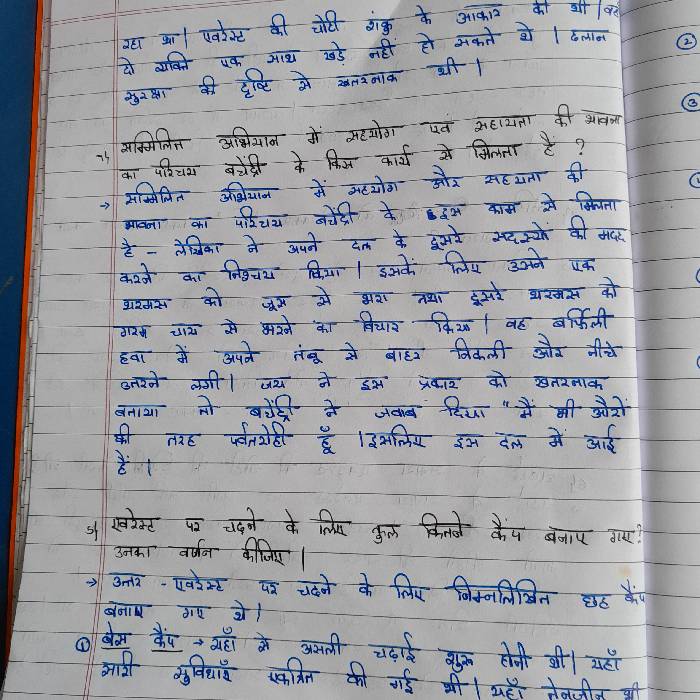 रहा था। एवरेस्ट की चोटी शंकु के आकार की थी। वहाँ
दो व्यक्ति एक साथ खड़े नहीं हो सकते थे। ढलान
सुरक्षा की दृष्टि से खतरनाक थी।
सम्मिलित अभियान में सहयोग एवं सहायता की भावना
का परिचय बचेंद्री के किस कार्य से मिलता है?
→ सम्मिलित अभियान में सहयोग और सहयता की
भावना का परिचय बचेंद्री के इस काम से मिलता
है - लेखिका ने अपने दल के दूसरे सदस्यों की मदद
करने का निश्चय किया। इसके लिए उसने एक
थरमस को जूस से भरा तथा दूसरे थरमस को
गरम चाय से भरने का विचार किया। वह बर्फिली
हवा में अपने तंबू से बाहर निकली और नीचे
उतरने लगी। जय ने इस प्रकार को खतरनाक
बताया तो बचेंद्री ने जवाब दिया "मैं भी औरों
की तरह पर्वतरोही हूँ। इसलिए इस दल में आई
हैं।
एवरेस्ट पर चढ़ने के लिए कुल कितने कैंप बनाए गए?
उनका वर्णन कीजिए।
→ उत्तर - एवरेस्ट पर चढ़ने के लिए निम्नलिखित छह कैंप
बनाए गए थे।
① बेस कैंप → यहाँ से असली चढ़ाई शुरू होनी थी। यहाँ
सारी सुविधाएँ एकत्रित की गई थी। यहाँ